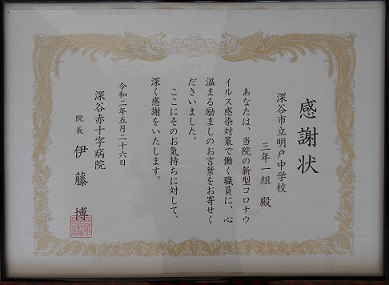 感謝状
深谷市立明戸中学校
三年一組 殿
あなたは、当院の新型コロナウ
イルス感染対策で働く職員に、心
温まる励ましのお言葉をお寄せく
ださいました。
ここにそのお気持ちに対して、
深く感謝をいたします。
令和二年五月二十六日
深谷赤十字病院
院長 伊藤 博